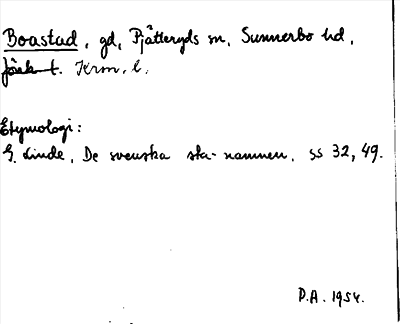 Boastad, gd, Pjätteryds sn, Sunnerbo hd,
Krm. l.
Etymologi:
G. Linde, De svenska sta-namnen, ss 32, 49.
P.A. 1954.